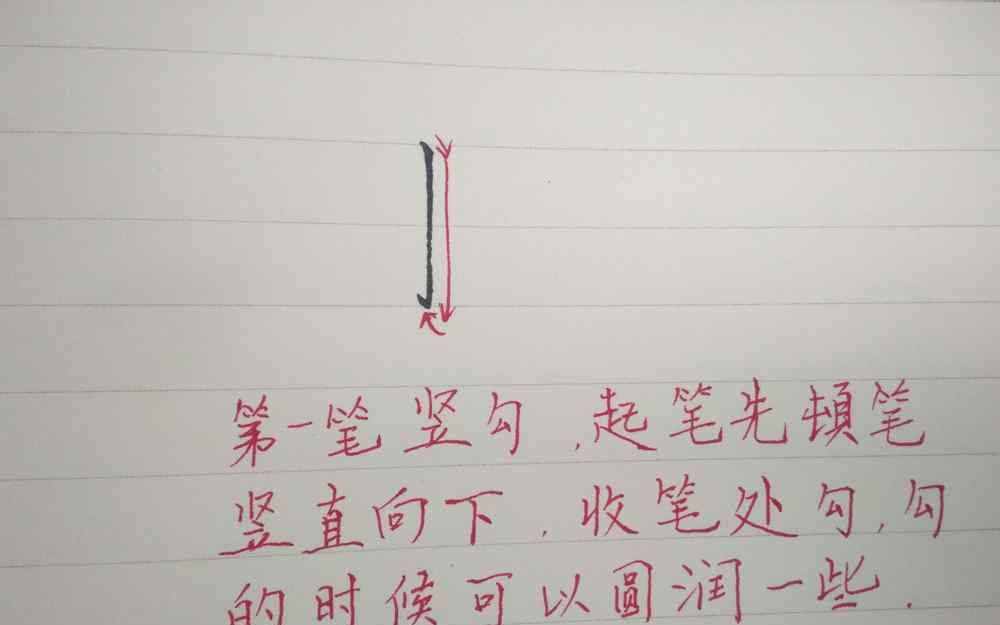 第一笔竖勾,起笔先頓笔
竖直向下,收笔处勾,勾
的时候可以圆润一些.